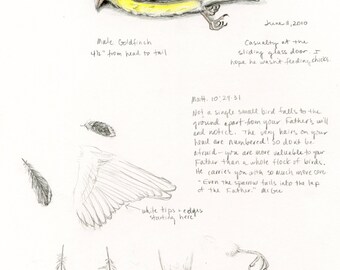 June 8, 2010
Male Goldfinch
4½" from head to tail
Casualty at the
sliding glass door. I
hope he wasn't feeding chicks.
Matt. 10:29-31
Not a single small bird falls to the
ground apart from your Father's will
and notice. The very hairs on your
head are numbered! So don't be
afraid - you are more valuable to your
Father than a whole flock of birds.
He carries you with so much more care.
"Even the sparrow falls into the lap
of the Father."
white tips + edges
starting here